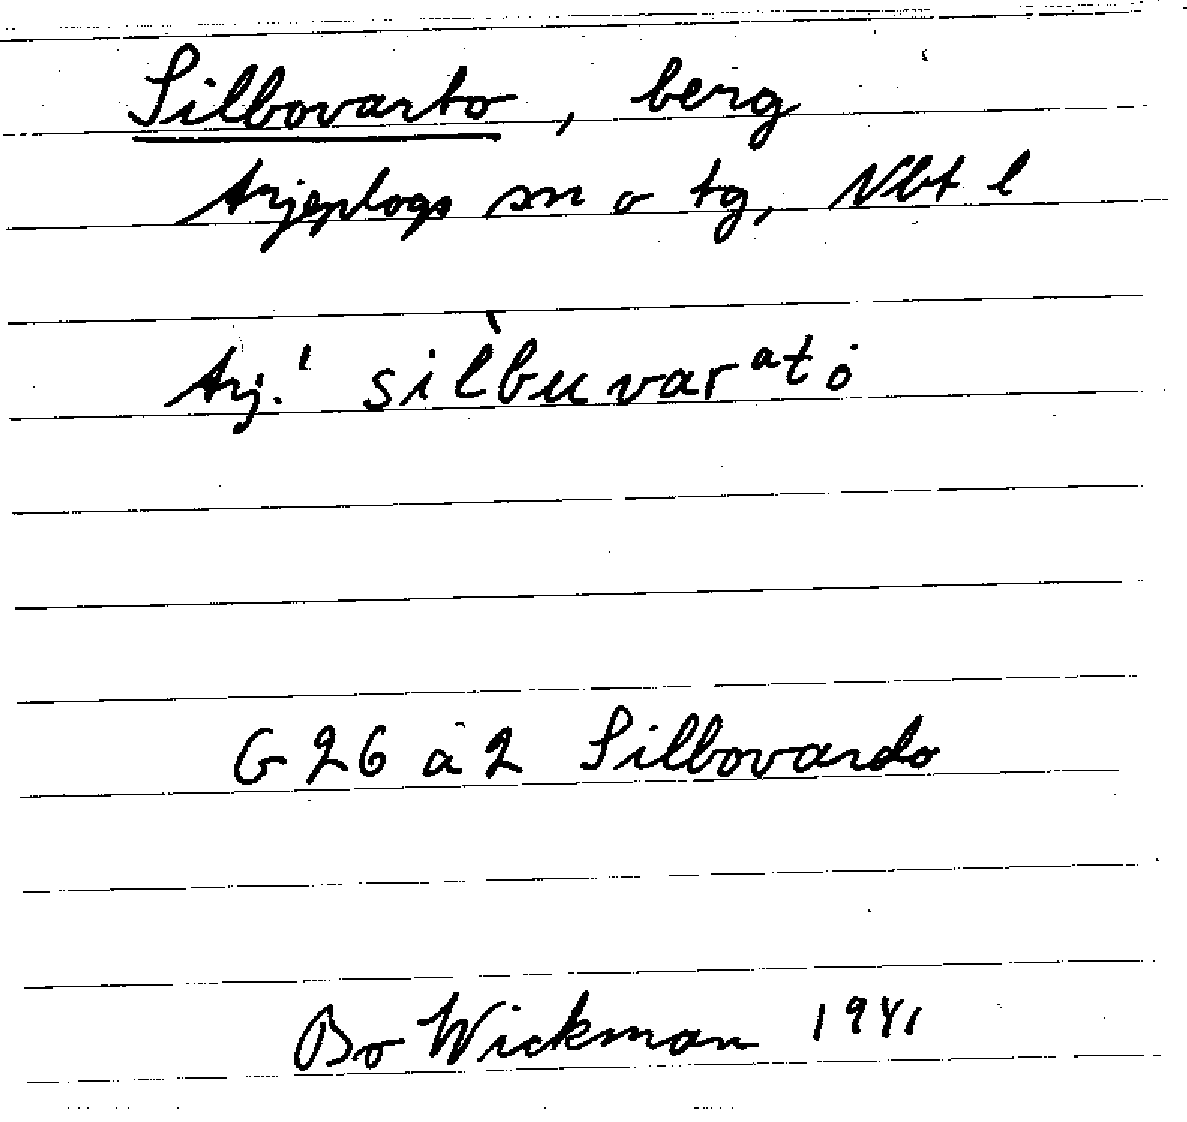 Silbovarto, berg
Arjeplogs sn o tg, Nbt l
Arj. ˈsilˋbuvarᵃtȯ
G 26 a 2 Silbovardo
Bo Wickman 1941